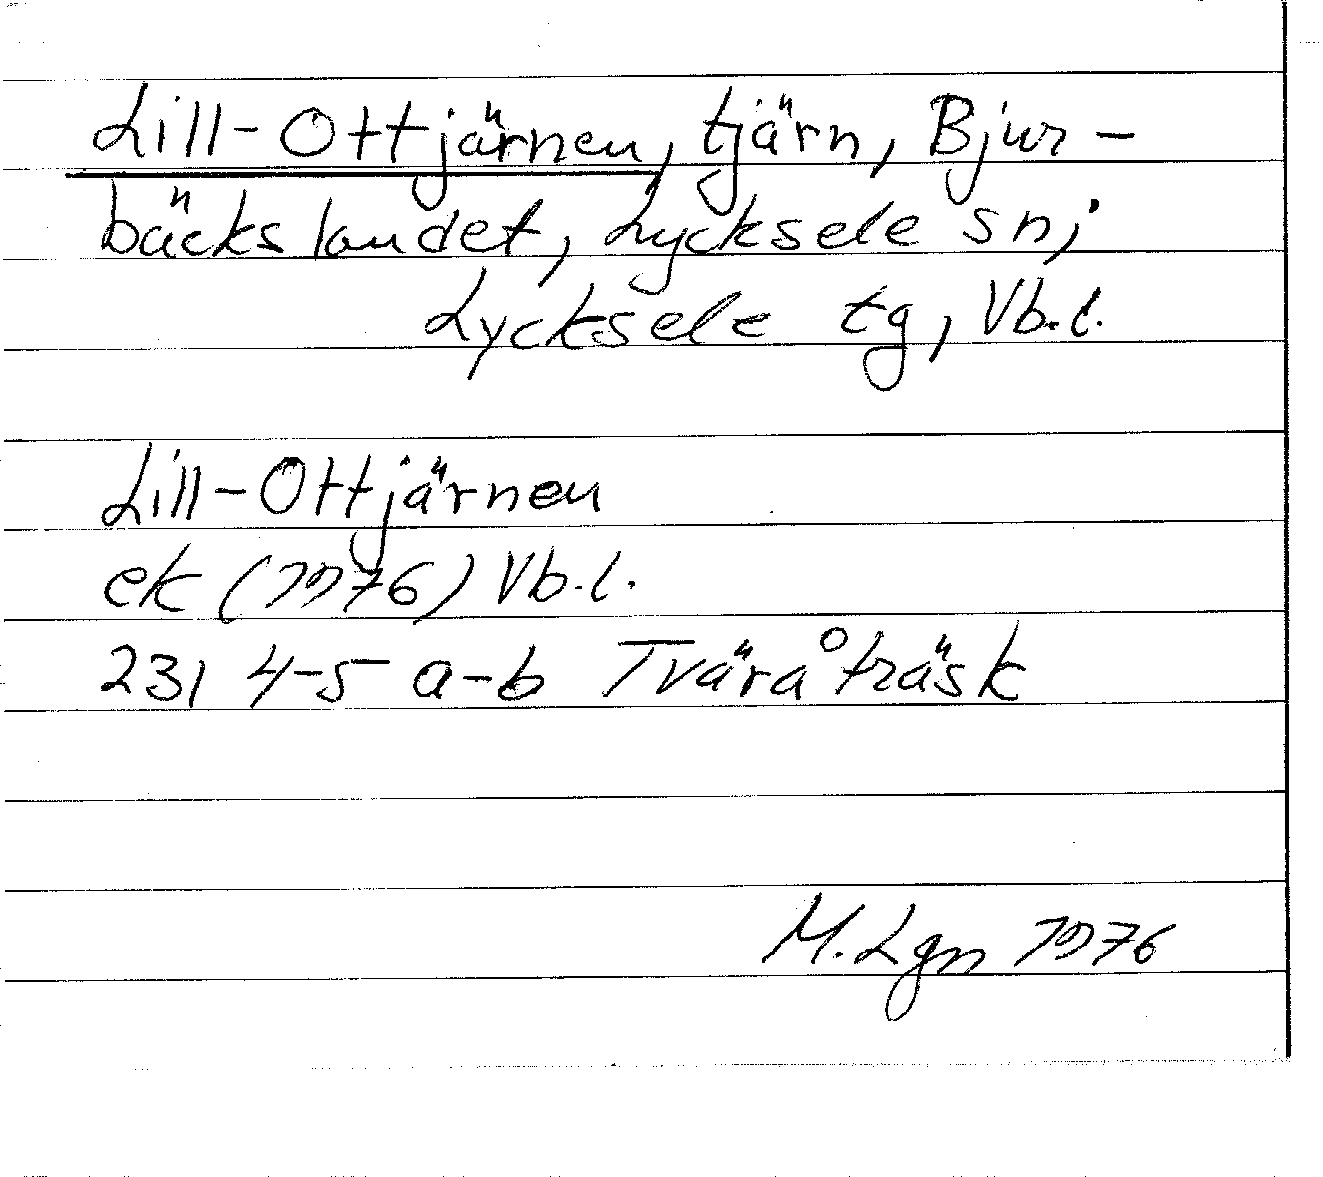 Lill-Ottjärnen, tjärn, Bjur-
bäckslandet, Lycksele sn;
Lycksele tg, Vb.l.
Lill-Ottjärnen
ek (1976) Vb.l.
231 4-5 a-b Tväråträsk
M. Lgn 1976